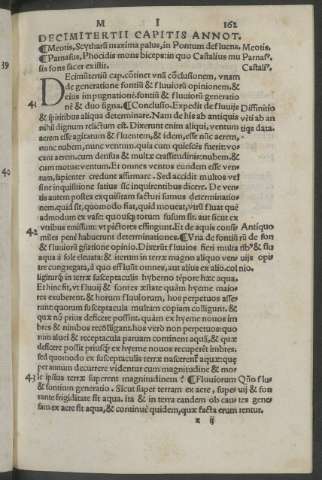 M I 162
DECIMITERTII CAPITIS ANNOT.
¶Meotis, Scytharū maxima palus, in Pontum defluens. Meotis.
¶Parnasus, Phocidis mons biceps: in quo Castalius mu Parnas⸗
sis fons sacer extitit. Castali⁹.
39
DEcimūtertiū cap. cōtinet vnā cōclusionem, vnam
de generatione fontiū & fluuiorū opinionem, &
eius impugnationē. fontiū & fluuiorū generatio
41 nē & duo signa. ¶Conclusio. Expedit de fluuijs Diffinitio
& spiritibus aliqua determinare. Nam de his ab antiquis vēti ab an
nihil dignum relictum est. Dixerunt enim aliqui, ventum tiqs data.
aerem esse agitatum & fluentem, & idem, esse nūc aerem,
40 nunc nubem, nunc ventum. quia cum quiescit: fuerit: vo⸗
cant aerem. cum densus & multū crassitudinis: nubem. &
cum mouetur: ventum. Et omnes ventos eundem esse ven⸗
tum, sapienter credunt affirmare. Sed accidit multos vel
sine inquisitione satius sic inquirentibus dicere. De ven⸗
tis autem postea exquisitam facturi sumus determinatio⸗
nem. quid sit, quomodo fiat, quid moueat, vtrū fluat quē
admodum ex vase: quousq; totum fusum sit. aut sicut ex
vtribus emissum: vt pictores effingunt. Et de aquis consi⸗ Antiquo
42 miles penè habuerunt determinationes. ¶Vna de fontiū rū de fon
& fluuiorū gñatione opinio. Dixerūt fluuios fieri multa tib⁹ & flu
aqua à sole eleuata: & iterum in terrā: magno aliquo ven⸗ uijs opi
tre congregata, à quo effluūt omnes, aut alius ex alio. col nio.
ligiturq; in terræ susceptaculis hyberno tēpore hæc aqua.
Et hinc fit, vt fluuij & fontes æstate quàm hyeme maio⸗
res exuberent. & horum fluuiorum, hos perpetuos asse⸗
runt: quorum susceptacula multam copiam colligunt, &
quæ nō prius deficere possint. quàm ex hyeme nouos im
bres & niuibus recolligant. hos verò non perpetuos: quo
rum aluei & receptacula paruam continent aquā, & quæ
deficere possit priusq̃ ex hyeme nouos recuperēt imbres.
sed quomodo ex susceptaculis terræ nascerent̃ aquæ: quę
per annum decurrere videntur cum magnitudine & mo⸗
43 le ipsius terræ superent magnitudinem? ¶Fluuiorum Qñō flu⸗
& fontium generatio. Sicut super terram ex aere, super uij & fon
rante frigiditate fit aqua. ita & in terra eandem ob cau⸗ tes gene⸗
sam ex aere fit aqua, & continuè quidem, quæ facta erum rentur.
x ij